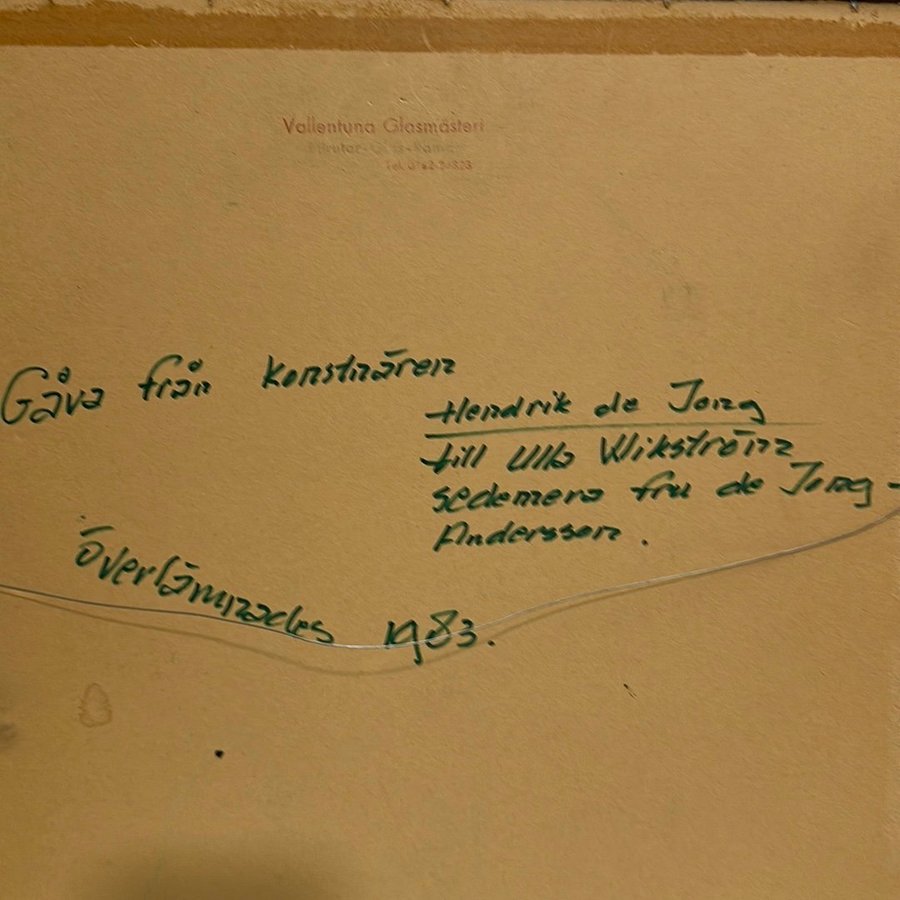 Vallentuna Glasmästeri
Gåva från konstnären
Hendrik de Jong
till Ulla Wikström
sedemera fru de Jong -
Andersson.
överlämnades 1983.